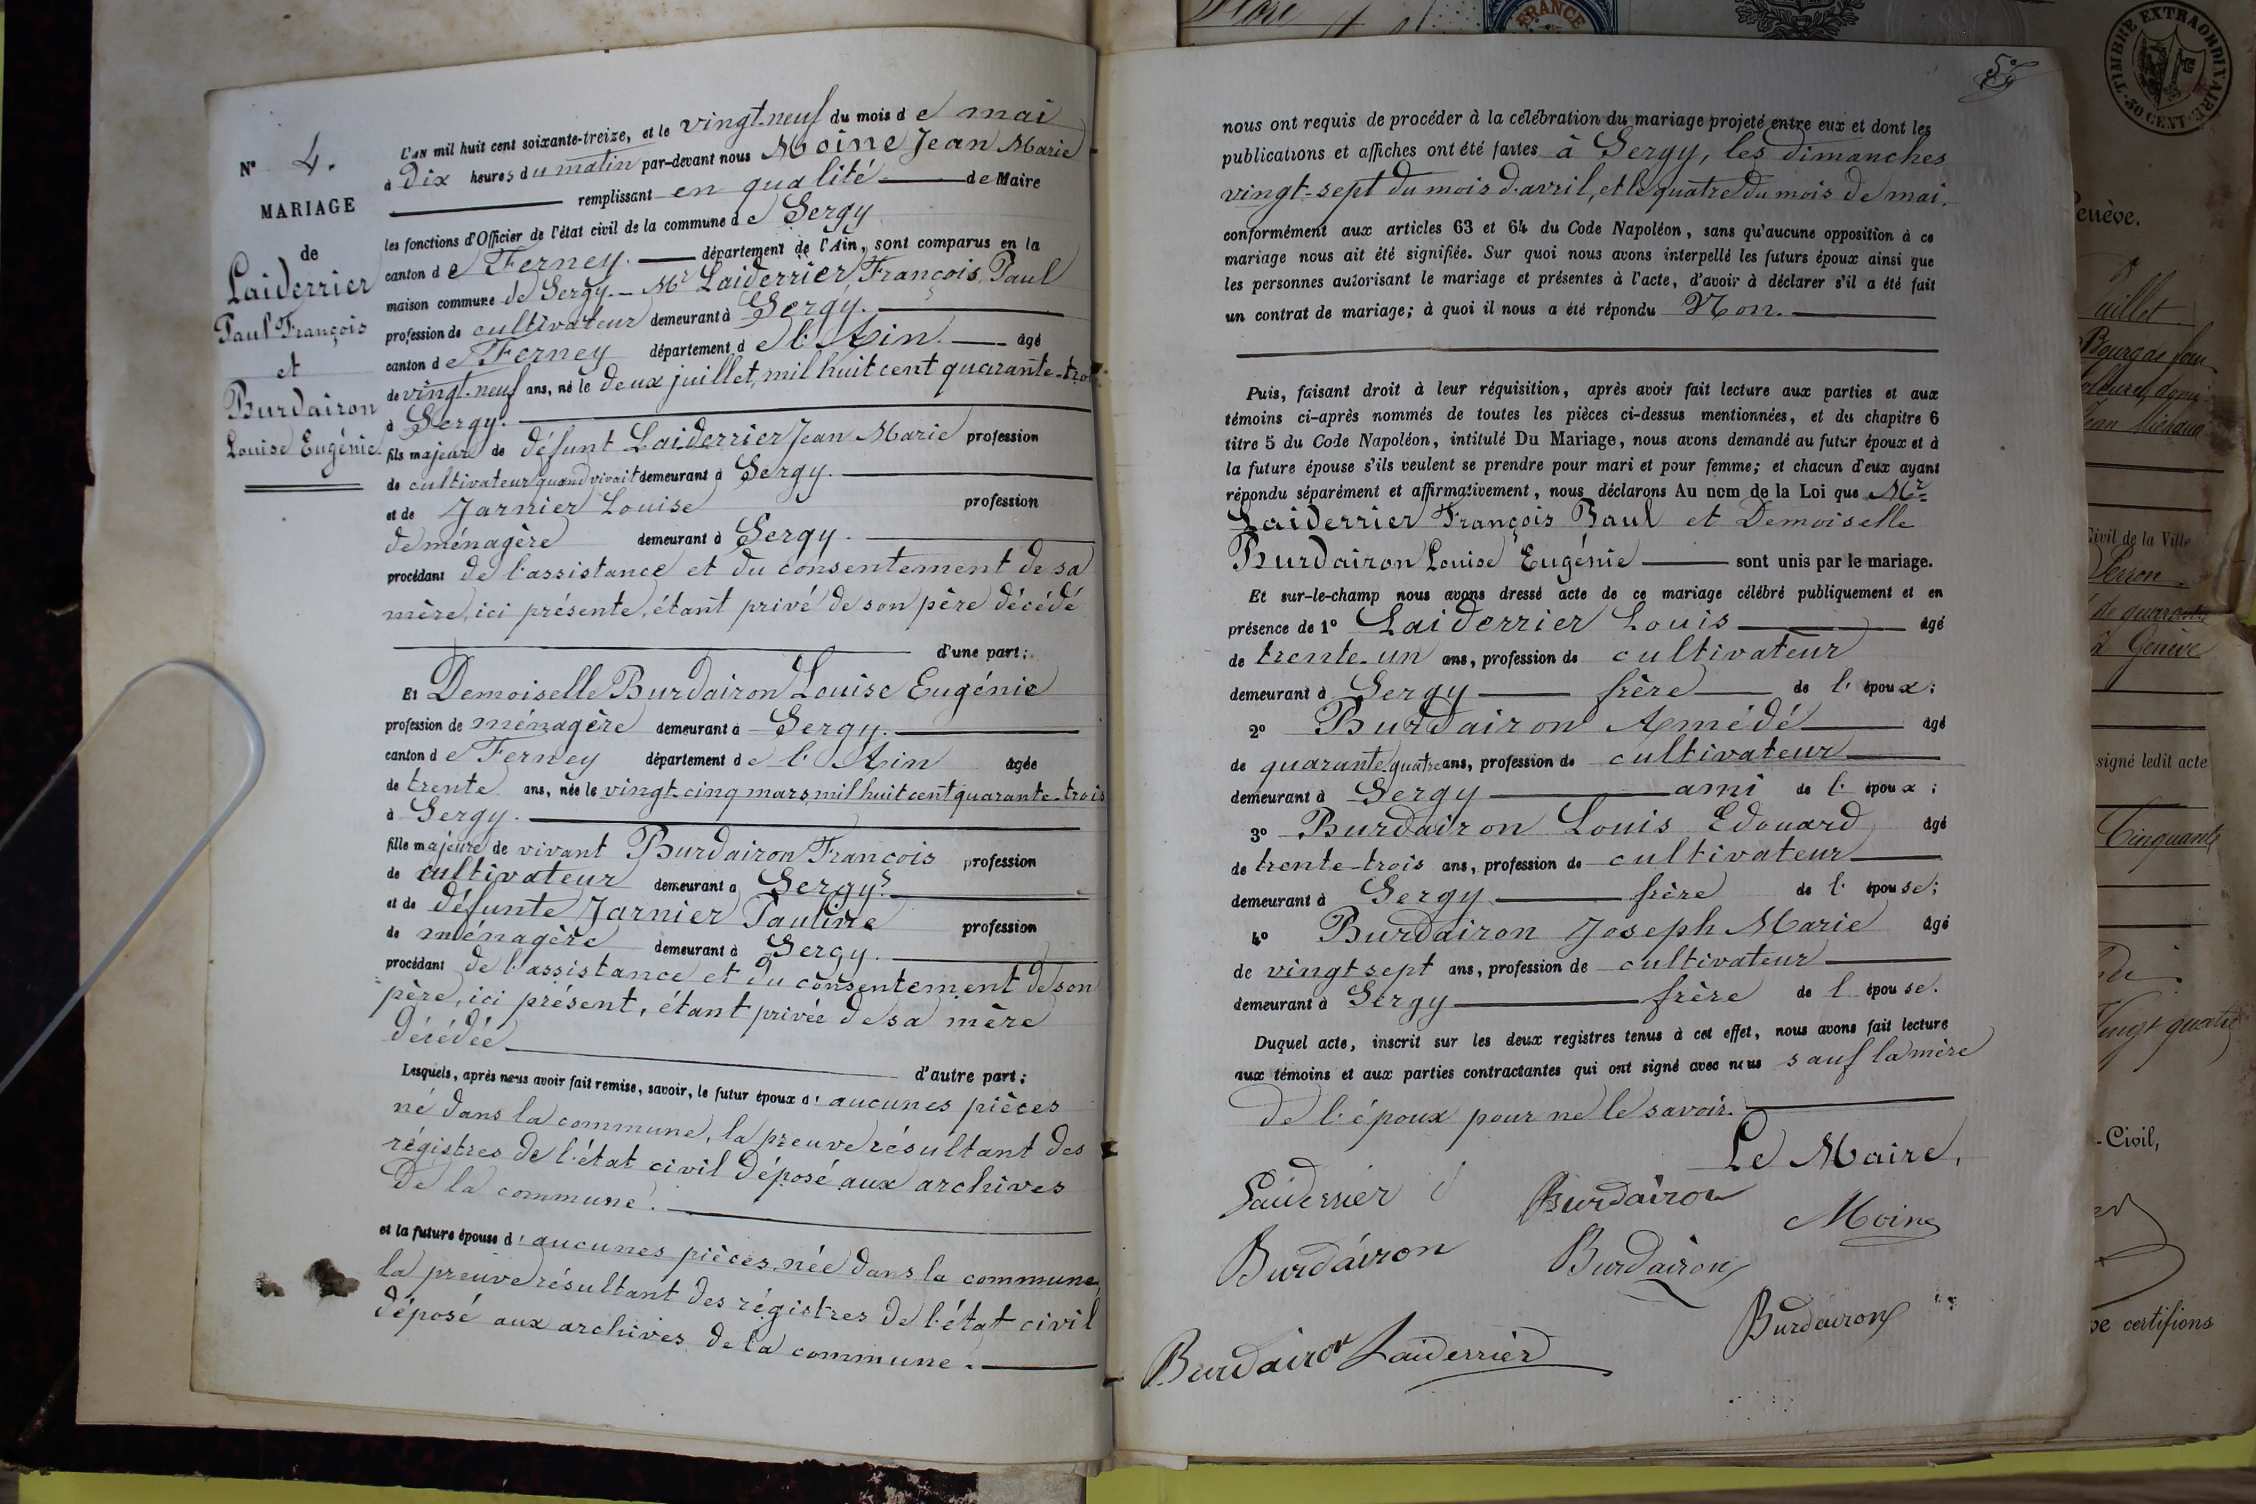 N° 4.
MARIAGE
de
Laiderrier
Paul François
et
Burdairon
Louise Eugénie
L'AN mil huit cent soixante-treize, et le vingt-neuf du mois de mai
à dix heures du matin par-devant nous Moine Jean Marie
remplissant en qualité de Maire
les fonctions d'Officier de l'état civil de la commune de Sergy
canton de Ferney. département de l'Ain, sont comparus en la
maison commune de Sergy. Mr Laiderrier François Paul
profession de cultivateur demeurant à Sergy.
canton de Ferney département de l'Ain. âgé
de vingt-neuf ans, né le deux juillet, mil huit cent quarante-trois
à Sergy.
fils majeur de défunt Laiderrier Jean Marie profession
de cultivateur quand vivait demeurant à Sergy.
et de Jarnier Louise profession
de ménagère demeurant à Sergy.
procédant de l'assistance et du consentement de sa
mère, ici présente, étant privé de son père décédé
d'une part;
Et Demoiselle Burdairon Louise Eugénie
profession de ménagère demeurant à Sergy.
canton de Ferney département de l'Ain âgée
de trente ans, née le vingt-cinq mars mil huit cent quarante-trois
à Sergy.
fille majeure de vivant Burdairon François profession
de cultivateur demeurant à Sergy.
et de défunte Jarnier Pauline profession
de ménagère demeurant à Sergy.
procédant de l'assistance et du consentement de son
père, ici présent, étant privée de sa mère
décédée
d'autre part;
Lesquels, après nous avoir fait remise, savoir, le futur époux d'aucunes pièces
né dans la commune, la preuve résultant des
régistres de l'état civil déposé aux archives
de la commune.
et la future épouse d'aucunes pièces, née dans la commune,
la preuve résultant des régistres de l'état civil
déposé aux archives de la commune.
nous ont requis de procéder à la célébration du mariage projeté entre eux et dont les
publications et affiches ont été faites à Sergy, les dimanches
vingt-sept du mois d'avril, et le quatre du mois de mai.
conformément aux articles 63 et 64 du Code Napoléon, sans qu'aucune opposition à ce
mariage nous ait été signifiée. Sur quoi nous avons interpellé les futurs époux ainsi que
les personnes autorisant le mariage et présentes à l'acte, d'avoir à déclarer s'il a été fait
un contrat de mariage; à quoi il nous a été répondu Non.
Puis, faisant droit à leur réquisition, après avoir fait lecture aux parties et aux
témoins ci-après nommés de toutes les pièces ci-dessus mentionnées, et du chapitre 6
titre 5 du Code Napoléon, intitulé Du Mariage, nous avons demandé au futur époux et à
la future épouse s'ils veulent se prendre pour mari et pour femme; et chacun d'eux ayant
répondu séparément et affirmativement, nous déclarons Au nom de la Loi que Mr
Laiderrier François Paul et Demoiselle
Burdairon Louise Eugénie sont unis par le mariage.
Et sur-le-champ nous avons dressé acte de ce mariage célébré publiquement et en
présence de 1° Laiderrier Louis âgé
de trente-un ans, profession de cultivateur
demeurant à Sergy frère de l'époux;
2° Burdairon Amédé âgé
de quarante-quatre ans, profession de cultivateur
demeurant à Sergy ami de l'époux;
3° Burdairon Louis Edouard âgé
de trente-trois ans, profession de cultivateur
demeurant à Sergy frère de l'épouse;
4° Burdairon Joseph Marie âgé
de vingt sept ans, profession de cultivateur
demeurant à Sergy frère de l'épouse.
Duquel acte, inscrit sur les deux registres tenus à cet effet, nous avons fait lecture
aux témoins et aux parties contractantes qui ont signé avec nous sauf la mère
de l'époux pour ne le savoir.
Le Maire,
Laiderrier Burdairon Moine
Burdairon Burdairon
Burdairon
Burdairon Laiderrier
FRANCE
TIMBRE EXTRAORDINAIRE
50 CENT.
Genève.
Civil de la Ville
Perron
de quarante
à Genève
signé ledit acte
Cinquante
Vingt quatre
Civil,
certifions